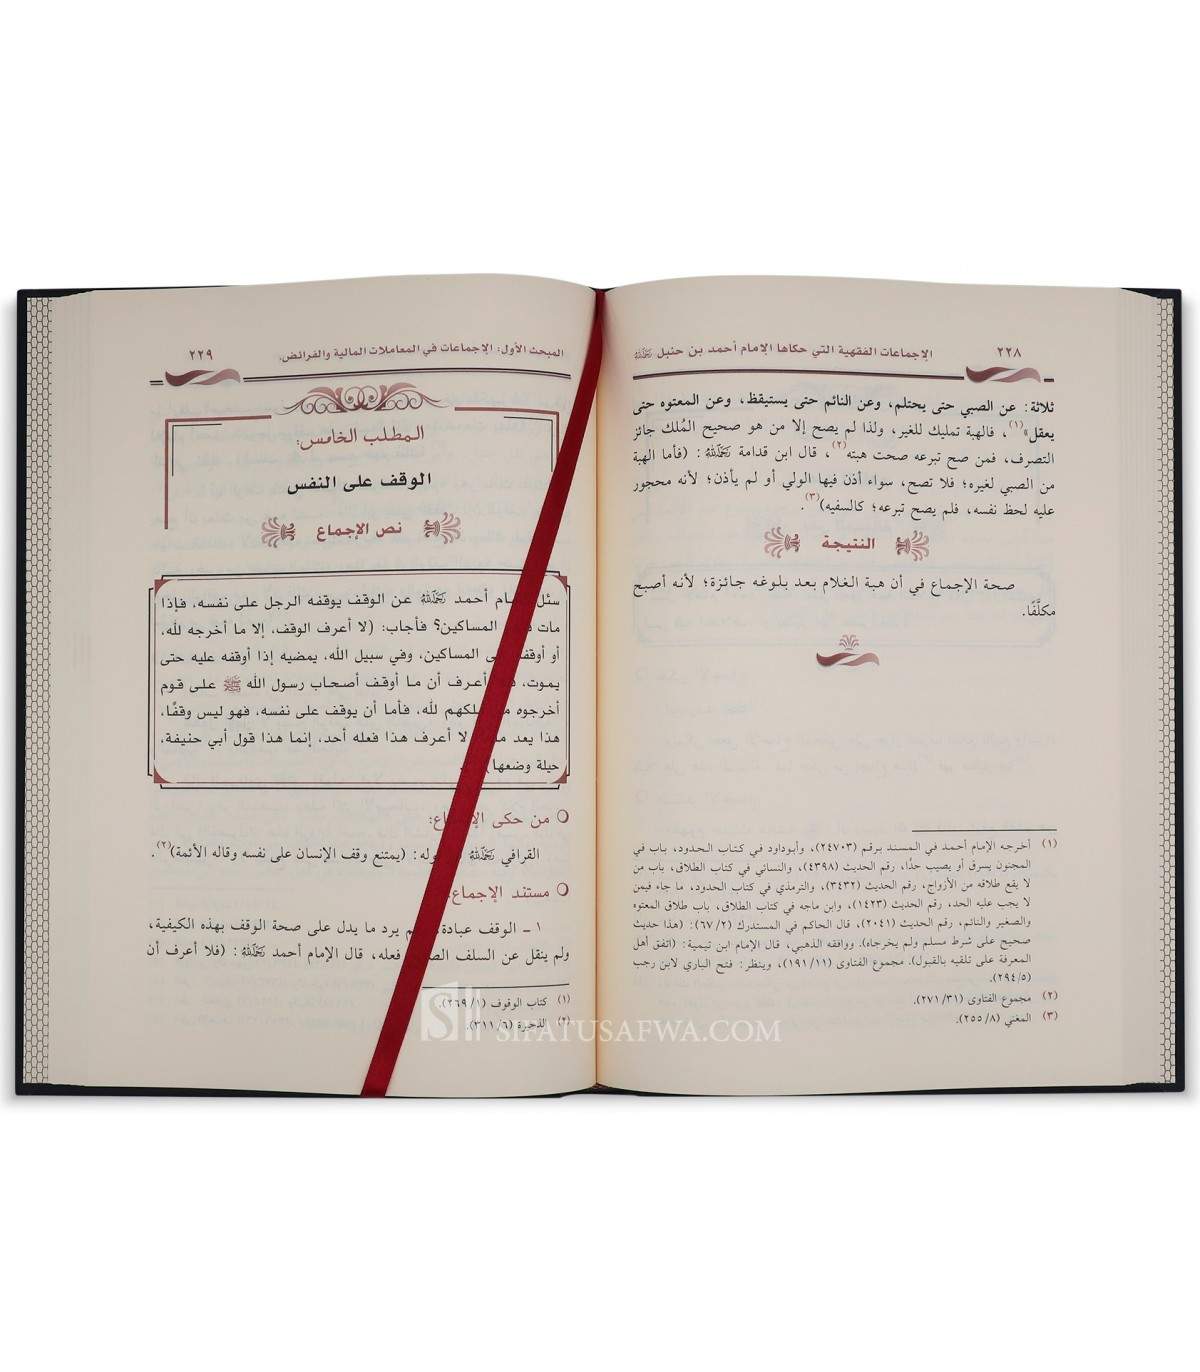 ٢٢٨
الإجماعات الفقهية التي حكاها الإمام أحمد بن حنبل رَحِمَهُ اللَّهُ
ثلاثة: عن الصبي حتى يحتلم، وعن النائم حتى يستيقظ، وعن المعتوه حتى
يعقل»(١)، فالهبة تمليك للغير، ولذا لم يصح إلا من هو صحيح المُلك جائز
التصرف، فمن صح تبرعه صحت هبته(٢)، قال ابن قدامة رَحِمَهُ اللَّهُ: (فأما الهبة
من الصبي لغيره؛ فلا تصح، سواء أذن فيها الولي أو لم يأذن؛ لأنه محجور
عليه لحظ نفسه، فلم يصح تبرعه؛ كالسفيه)(٣).
النتيجة
صحة الإجماع في أن هبة الغلام بعد بلوغه جائزة؛ لأنه أصبح
مكلَّفًا.
(١) أخرجه الإمام أحمد في المسند برقم (٢٤٧٠٣)، وأبوداود في كتاب الحدود، باب في
المجنون يسرق أو يصيب حدًا، رقم الحديث (٤٣٩٨)، والنسائي في كتاب الطلاق، باب من
لا يقع طلاقه من الأزواج، رقم الحديث (٣٤٣٢)، والترمذي في كتاب الحدود، ما جاء فيمن
لا يجب عليه الحد، رقم الحديث (١٤٢٣)، وابن ماجه في كتاب الطلاق، باب طلاق المعتوه
والصغير والنائم، رقم الحديث (٢٠٤١)، قال الحاكم في المستدرك (٦٧/٢): (هذا حديث
صحيح على شرط مسلم ولم يخرجاه). ووافقه الذهبي، قال الإمام ابن تيمية: (اتفق أهل
المعرفة على تلقيه بالقبول). مجموع الفتاوى (١٩١/١١)، وينظر: فتح الباري لابن رجب
(٢٩٤/٥).
(٢) مجموع الفتاوى (٢٧١/٣١).
(٣) المغني (٢٥٥/٨).
المبحث الأول: الإجماعات في المعاملات المالية والفرائض.
٢٢٩
المطلب الخامس:
الوقف على النفس
نص الإجماع
سئل أحمد رَحِمَهُ اللَّهُ عن الوقف يوقفه الرجل على نفسه، فإذا
مات المساكين؟ فأجاب: (لا أعرف الوقف، إلا ما أخرجه لله،
أو أوقفه المساكين، وفي سبيل الله، يمضيه إذا أوقفه عليه حتى
يموت، أعرف أن ما أوقف أصحاب رسول الله ﷺ على قوم
أخرجوه لله، فأما أن يوقف على نفسه، فهو ليس وقفًا،
هذا يعد لا أعرف هذا فعله أحد، إنما هذا قول أبي حنيفة،
حيلة وضعها)
من حكى الإجماع:
القرافي رَحِمَهُ اللَّهُ (يمتنع وقف الإنسان على نفسه وقاله الأئمة)(٢).
مستند الإجماع
١ ـ الوقف عبادة، يرد ما يدل على صحة الوقف بهذه الكيفية،
ولم ينقل عن السلف فعله، قال الإمام أحمد رَحِمَهُ اللَّهُ: (فلا أعرف أن
(١) كتاب الوقوف (٢٦٩/١).
(٢) الذخيرة (٣١١/٦).
SIFATUSAFWA.COM